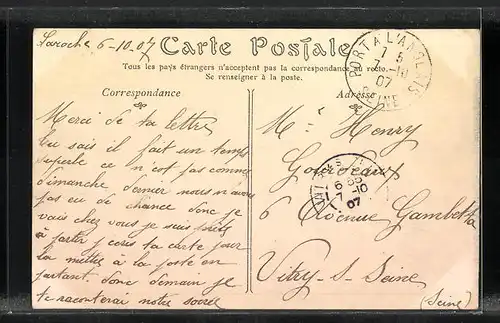 Laroche 6-10.07
Carte Postale
Tous les pays étrangers n'acceptent pas la correspondance au recto.
Se renseigner à la poste.
Correspondance
Adresse
PORT A L'ANGLAIS
7 10
07
SEINE
Merci de ta lettre
tu sais il fait un temps
superbe ce n'est pas comme
dimanche dernier nous n'avons
pas eu de chance donc je
vais chez vous je suis prête
à partir j'écris ta carte pour
la mettre à la poste en
partant. donc demain je
te raconterai notre soirée
Henry
Gourdeaux
6 Avenue Gambetta
Vitry-S-Seine
(Seine)
7-10
07